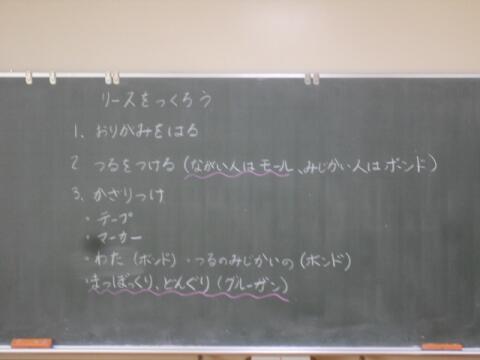 リースをつくろう
1、おりがみをはる
2 つるをつける(ながい人はモール、みじかい人はボンド)
3、かざりつけ
・テープ
・マーカー
・わた(ボンド)・つるのみじかいの(ボンド)
・まつぼっくり、どんぐり(グルーガン)